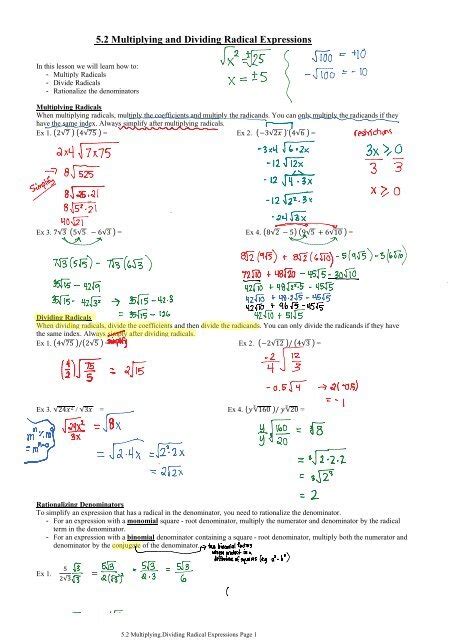 5.2 Multiplying and Dividing Radical Expressions
√x² = ±√25
x = ±5
√100 = +10
-√100 = -10
In this lesson we will learn how to:
- Multiply Radicals
- Divide Radicals
- Rationalize the denominators
Multiplying Radicals
When multiplying radicals, multiply the coefficients and multiply the radicands. You can only multiply the radicands if they
have the same index. Always simplify after multiplying radicals.
Ex 1. (2√7)(4√75) =
2x4√7x75
8√525
Simplify
8√25·21
8√5²·21
40√21
Ex 2. (-3√2x)(4√6) =
-3x4√6·2x
-12√12x
-12√4·3x
-12√2²·3x
-24√3x
restrictions
3x ≥ 0
3 3
x ≥ 0
Ex 3. 7√3 (5√5 - 6√3) =
7√3(5√5) - 7√3(6√3)
35√15 - 42√9
35√15 - 42√3² → 35√15 - 42·3
= 35√15 - 126
Ex 4. (8√2 - 5)(9√5 + 6√10) =
8√2(9√5) + 8√2(6√10) - 5(9√5) - 5(6√10)
72√10 + 48√20 - 45√5 - 30√10
42√10 + 48√2²·5 - 45√5
42√10 + 48·2√5 - 45√5
42√10 + 96√5 - 45√5
42√10 + 51√5
Dividing Radicals
When dividing radicals, divide the coefficients and then divide the radicands. You can only divide the radicands if they have
the same index. Always simplify after dividing radicals.
Ex 1. (4√75)/(2√5) =
(4/2)√75/5 = 2√15
Ex 2. (-2√12)/(4√3) =
-2/4 √12/3
-0.5√4 → 2(-0.5)
= -1
Ex 3. √24x² / √3x =
√24x²/3x = √8x
= √2·4x = √2²·2x
= 2√2x
Ex 4. (y∛160)/y∛20 =
y/y ∛160/20 = ∛8
= ∛2·2·2
= ∛2³
= 2
Rationalizing Denominators
To simplify an expression that has a radical in the denominator, you need to rationalize the denominator.
- For an expression with a monomial square - root denominator, multiply the numerator and denominator by the radical
term in the denominator.
- For an expression with a binomial denominator containing a square - root denominator, multiply both the numerator and
denominator by the conjugate of the denominator.
Ex 1. 5/2√3 √3/√3 = 5√3/2(√3)² = 5√3/2·3 = 5√3/6
5.2 Multiplying;Dividing Radical Expressions Page 1